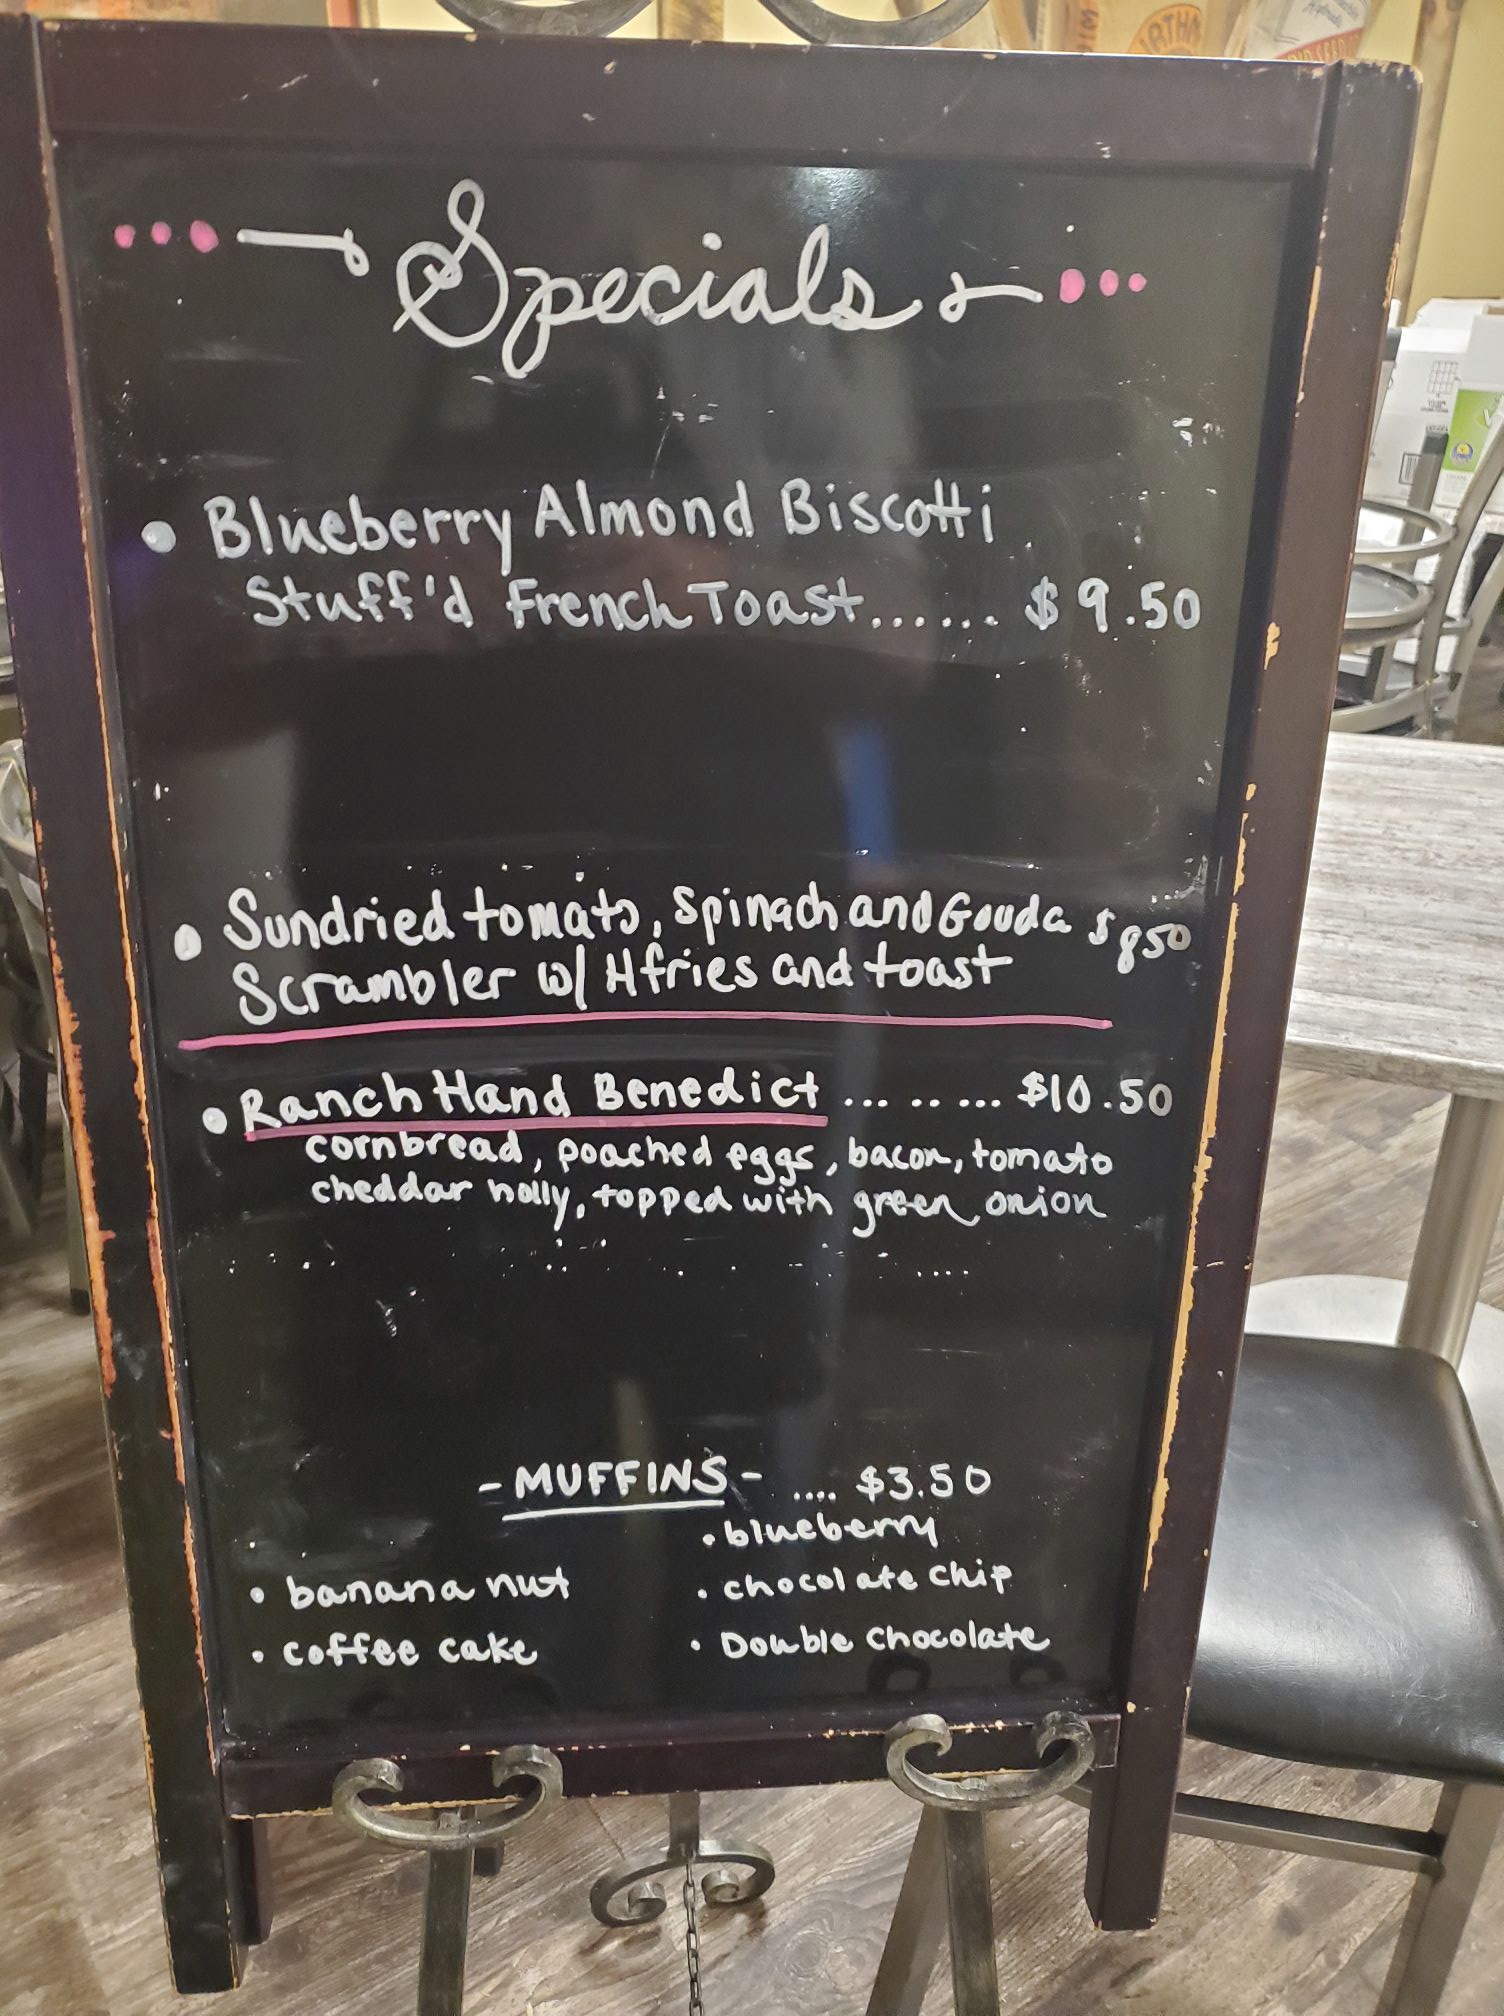 Specials
• Blueberry Almond Biscotti
Stuff'd French Toast...... $9.50
• Sundried tomato, Spinach and Gouda $850
Scrambler w/ Hfries and toast
• Ranch Hand Benedict ... .. ... $10.50
cornbread, poached eggs, bacon, tomato
cheddar holly, topped with green onion
- MUFFINS - .... $3.50
• blueberry
• banana nut • chocolate chip
• coffee cake • Double chocolate